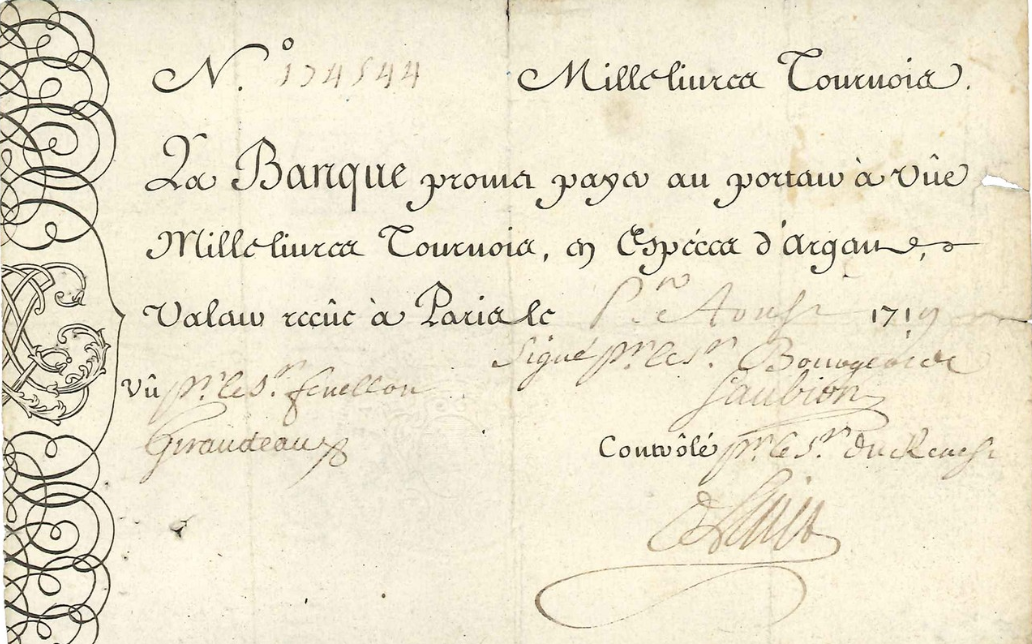 N.º 174544 Mille livres Tournois.
La Banque promet payer au porteur à vûe
Mille livres Tournois, en Especes d'Argent,
valeur receüe à Paris le P.er Aoust 1719
Signé p.r le S.r Bourgeois
Vû p.r le S.r fenellon Saubion
Giraudeau Contrôlé p.r le S.r Du Revest